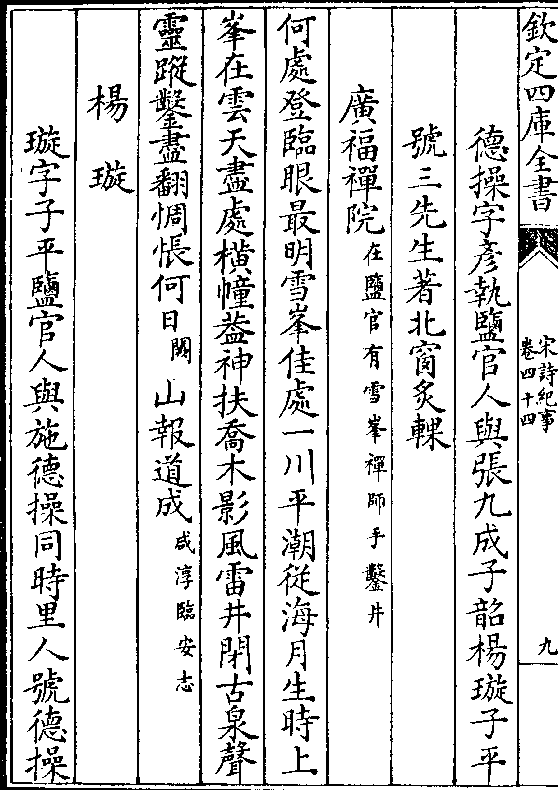 欽定四庫全書
宋詩紀事
卷四十四
九
德操字彦執鹽官人與張九成子韶楊璇子平
號三先生著北窗炙輠
廣福禪院在鹽官有雪峯禪師手鑿井
何處登臨眼最明雪峯佳處一川平潮從海月生時上
峯在雲天盡處橫幢葢神扶喬木影風雷井閉古泉聲
靈蹤鑿盡翻惆悵何日闕山報道成咸淳臨安志
楊璇
璇字子平鹽官人與施德操同時里人號德操